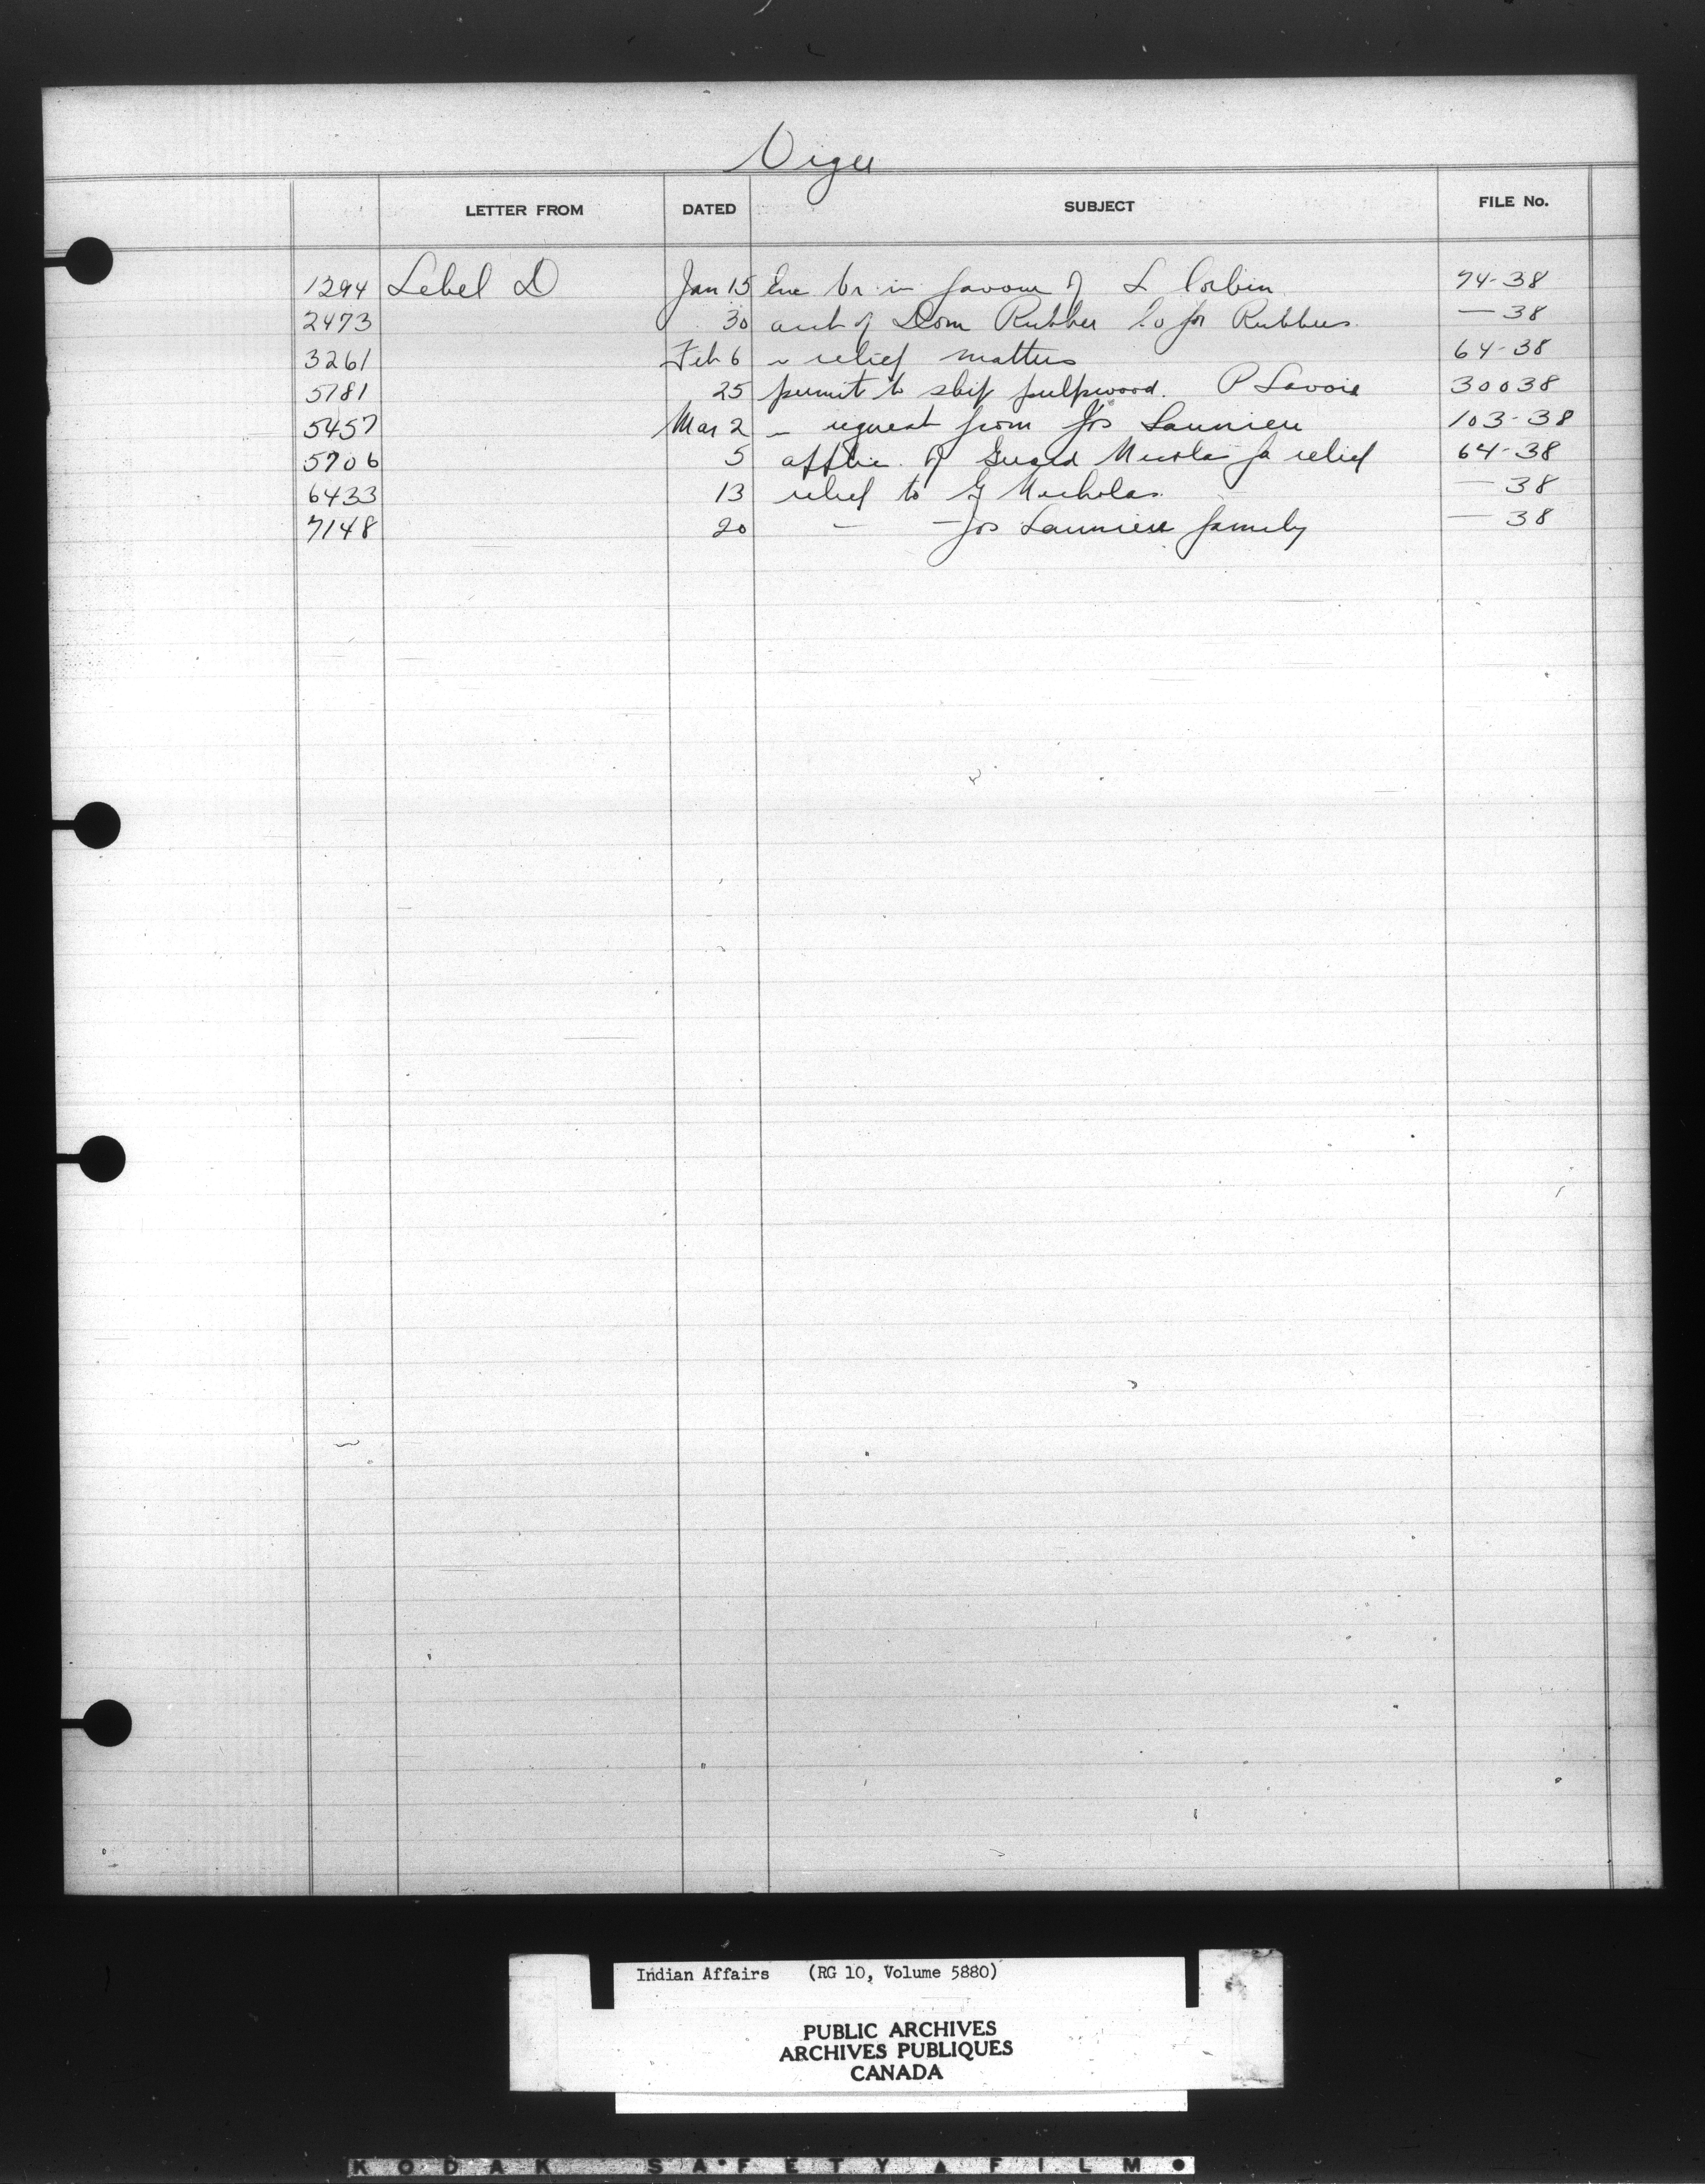 Viger
LETTER FROM DATED SUBJECT FILE No.
1294 Lebel D Jan 15 Enc Vr in favour of L Corbin 74-38
2473 30 acct of Dom Rubber Co for Rubbers — 38
3261 Feb 6 " relief matters 64-38
5181 25 permit to ship pulpwood. P Lavoie 30038
5457 Mar 2 " request from Jos Launiere 103-38
5706 5 applic. of Nicola for relief 64-38
6433 13 relief to G Nicholas — 38
7148 20 — — Jos Launiere family — 38
Indian Affairs (RG 10, Volume 5880)
PUBLIC ARCHIVES
ARCHIVES PUBLIQUES
CANADA
KODAK SAFETY FILM